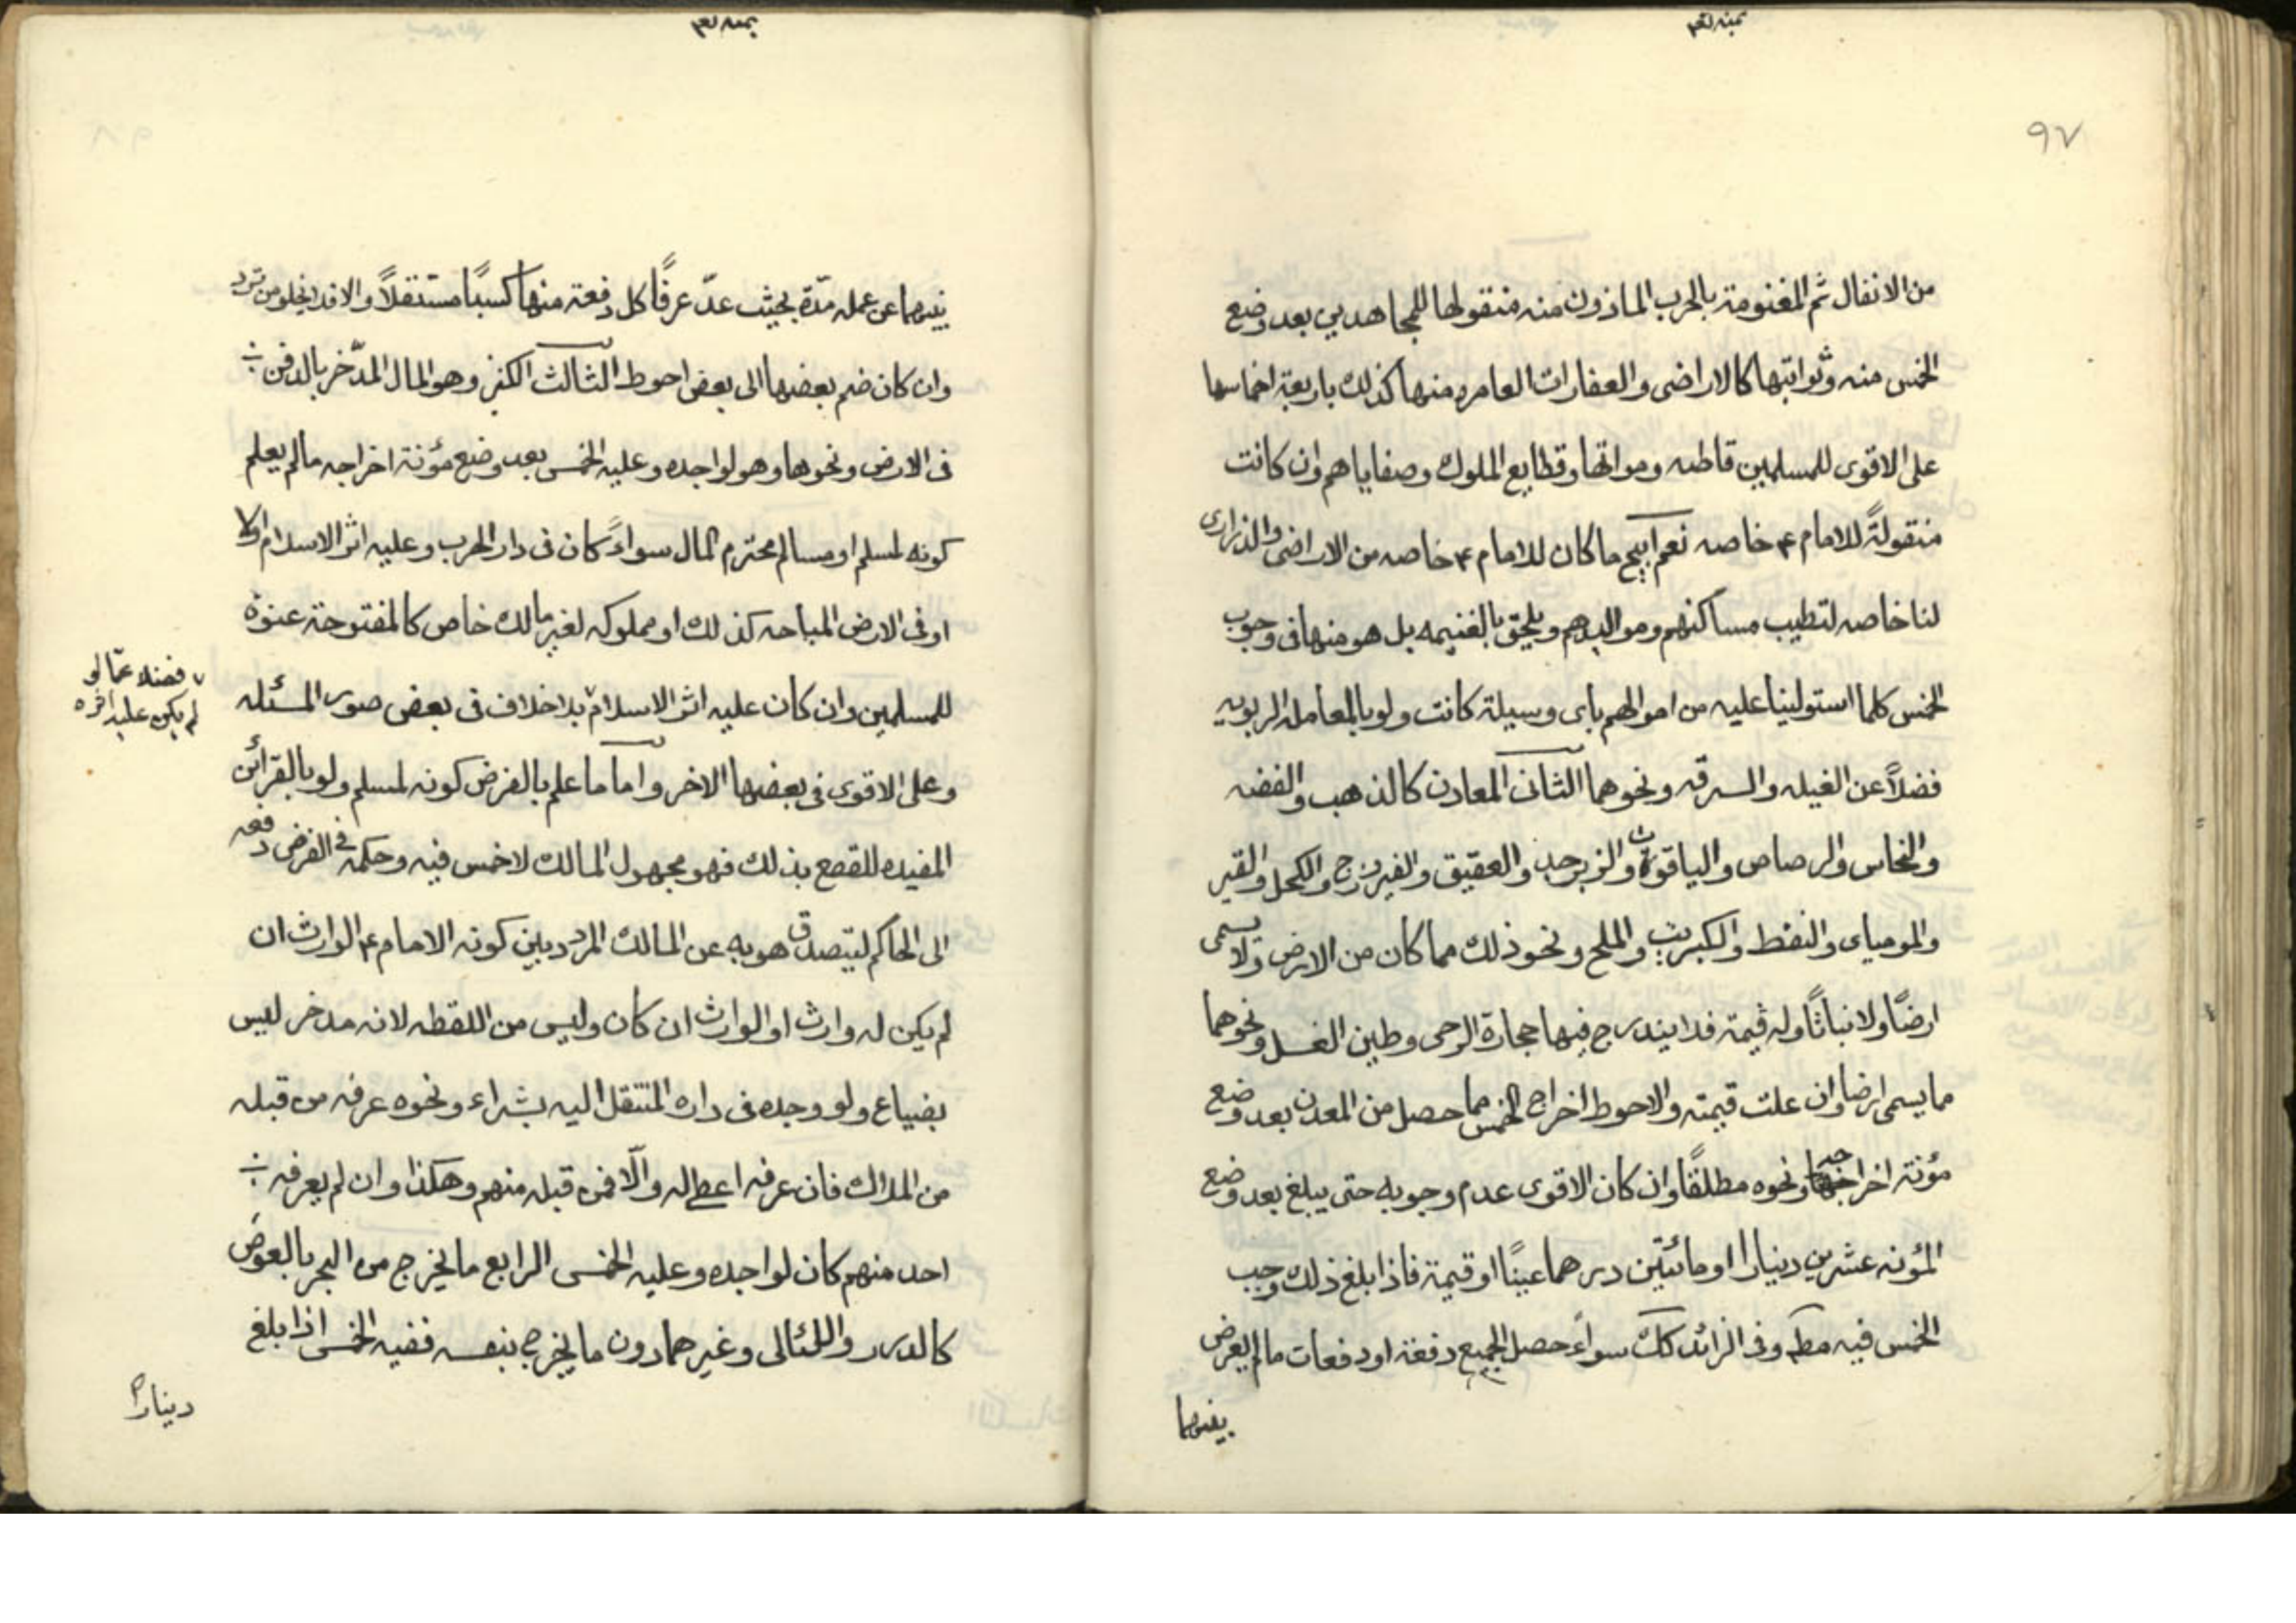 بمنه تعم
٩٧
من الانفال ثم المغنومة بالحرب الماذون منه منقولها للمجاهدين بعد وضع
الخمس منه وثوابتها كالاراضى والعقارات العامره منها كذلك باربعة اخماسها
على الاقوى للمسلمين قاطبه ومواتها وقطايع الملوك وصفاياهم وان كانت
منقولةً للامام ع خاصه نعم ابيح ما كان للامام ع خاصه من الاراضى والذرارى
لنا خاصه لتطيب مساكنهم ومواليدهم ويلحق بالغنيمه بل هو منها فى وجوب
الخمس كلما استولينا عليه من اموالهم باى وسيلة كانت ولو بالمعامله الربويه
فضلاً عن الغيله والسرقه ونحوهما الثانى المعادن كالذهب والفضه
والنحاس والرصاص والياقوت والزبرجد والعقيق والفيروزج والكحل والقير
والموميای والنفط والكبريت والملح ونحو ذلك مما كان من الارض ولا يسمى
ارضًا ولا نباتًا وله قيمة فلا يندرج فيها حجارة الرحى وطين الغسل ونحوهما
ما يسمى ارضا وان علت قيمته والاحوط اخراج الخمس مما حصل من المعدن بعد وضع
مؤنة اخراجه ونحوه مطلقًا وان كان الاقوى عدم وجوبه حتى يبلغ بعد وضع
المؤنه عشرين دينارا او مائتين درهما عينًا او قيمة فاذا بلغ ذلك وجب
الخمس فيه مطم وفى الزائد كك سواءً حصل الجميع دفعة او دفعات ما لم يعرض
بينهما
بمنه تعم
بينهما عن عمله مدّة بحيث عدّ عرفًا كل دفعة منها كسبًا مستقلاً والا فلا يخلو من تردد
وان كان ضم بعضها الى بعض احوط الثالث الكنز وهو المال المدّخر بالدفن
فى الارض ونحوها وهو لواجده وعليه الخمس بعد وضع مؤنة اخراجه ما لم يعلم
كونه لمسلم او مسالم محترم المال سواءً كان فى دار الحرب وعليه اثر الاسلام ام لا
او فى الارض المباحه كذلك او مملوكه لغير مالك خاص كالمفتوحة عنوة
للمسلمين وان كان عليه اثر الاسلام بلا خلاف فى بعض صور المسئله
٧ فضلا عمّا لو
لم يكن عليه اثره
وعلى الاقوى فى بعضها الاخر واما ما علم بالفرض كونه لمسلم ولو بالقرائن
المفيده للقطع بذلك فهو مجهول المالك لا خمس فيه وحكمه فى الفرض دفعه
الى الحاكم ليتصدق هو به عن المالك المردد بين كونه الامام ع الوارث ان
لم يكن له وارث او الوارث ان كان وليس من اللقطه لانه مدخر ليس
بضياع ولو وجده فى داره المنتقل اليه بشراء ونحوه عرفه من قبله
من الملاك فان عرفه اعطاله والّا فمن قبله منهم وهكذا وان لم يعرفه
احد منهم كان لواجده وعليه الخمس الرابع ما يخرج من البحر بالغوص
كالدرر واللئالى وغيرهما دون ما يخرج بنفسه ففيه الخمس اذا بلغ
دينارا